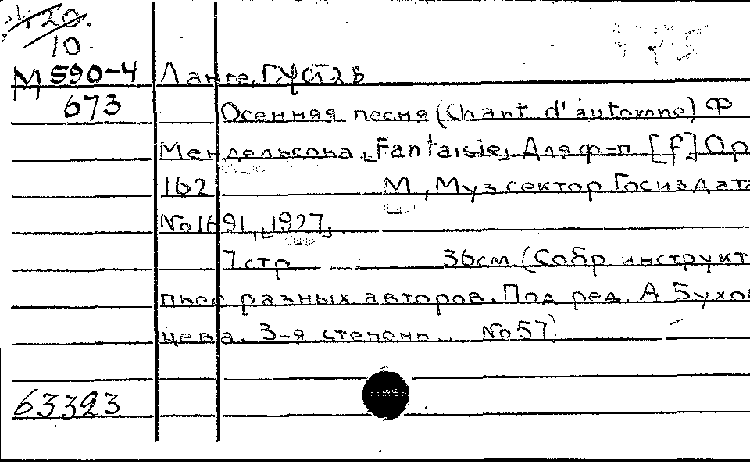 420.
10
М 590-4 Ланге, Густав
673 Осенняя песня (Chant d'automne) Ф
Мендельсона, Fantaisie, Для ф-п [f] Ор
162 М, Муз сектор Госиздата
No 1691, 1927,
7 стр 36см (Собр инструкт
пьес разных авторов. Под ред. А Бухов
цева. 3-я степень. No 57)
63393